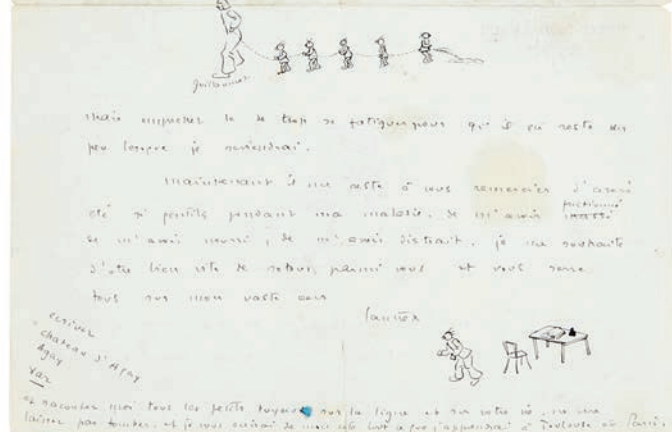 Guillaumet
mais empêcher le de trop se fatiguer pour qu'il en reste un
peu lorsque je reviendrai.
Maintenant il me reste à vous remercier d'avoir
été si gentils pendant ma maladie, de m'avoir frictionné
de m'avoir nourri, de m'avoir distrait. je me souhaite
d'être bien vite de retour parmi vous et vous serre
tous sur mon vaste
écrivez
chateau d'Agay
Agay
Var
et racontez moi tous les petits sur la ligne et sur votre vie. ne me
laissez pas tomber. et je vous de mon côté tout ce que j'apprendrai à Toulouse ou Paris.